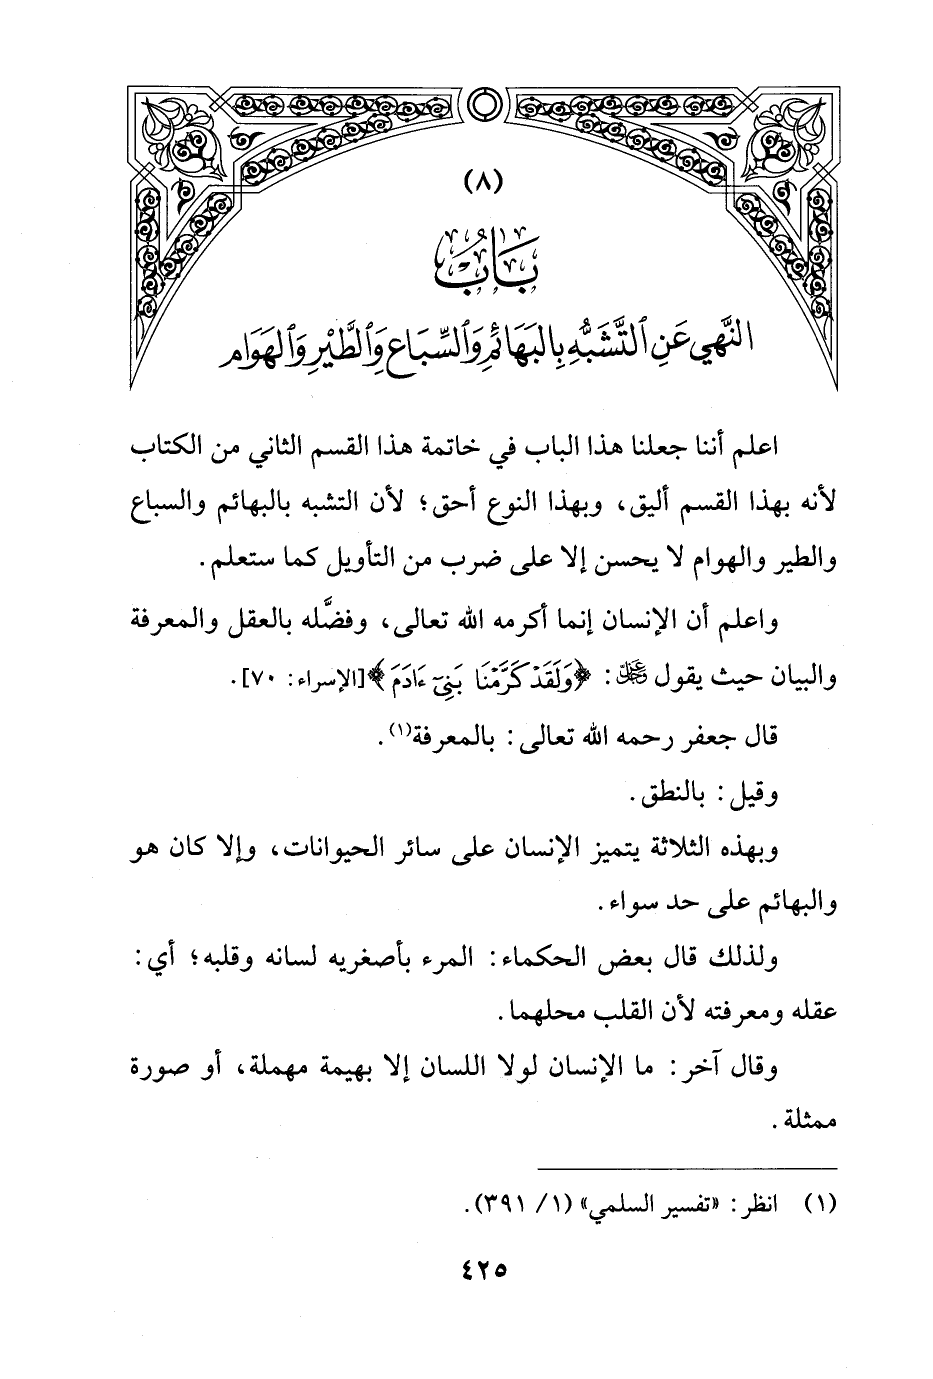 (٨)
بَابُ
النَّهي عَنِ ٱلتَّشَبُّهِ بِالبَهَائِمِ وَٱلسِّبَاعِ وَٱلطَّيْرِ وَٱلهَوَام
اعلم أننا جعلنا هذا الباب في خاتمة هذا القسم الثاني من الكتاب
لأنه بهذا القسم أليق، وبهذا النوع أحق؛ لأن التشبه بالبهائم والسباع
والطير والهوام لا يحسن إلا على ضرب من التأويل كما ستعلم.
واعلم أن الإنسان إنما أكرمه الله تعالى، وفضَّله بالعقل والمعرفة
والبيان حيث يقول ﷻ: ﴿وَلَقَدْ كَرَّمْنَا بَنِيٓ ءَادَمَ﴾ [الإسراء: ٧٠].
قال جعفر رحمه الله تعالى: بالمعرفة(١).
وقيل: بالنطق.
وبهذه الثلاثة يتميز الإنسان على سائر الحيوانات، وإلا كان هو
والبهائم على حد سواء.
ولذلك قال بعض الحكماء: المرء بأصغريه لسانه وقلبه؛ أي:
عقله ومعرفته لأن القلب محلهما.
وقال آخر: ما الإنسان لولا اللسان إلا بهيمة مهملة، أو صورة
ممثلة.
(١) انظر: «تفسير السلمي» (١/ ٣٩١).
٤٢٥